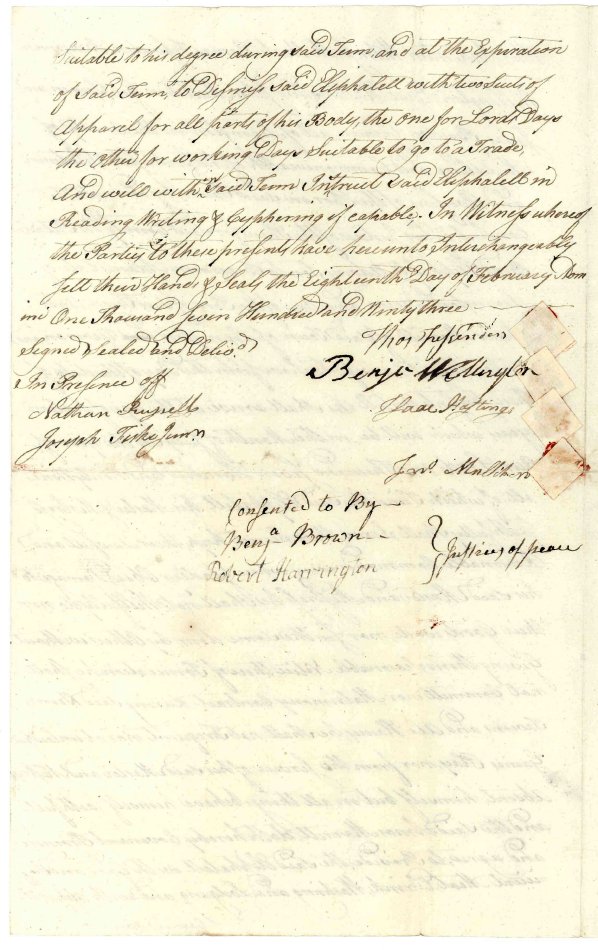 Suitable to his degree during said Term, and at the Expiration
of said Term, to Dismiss said Eliphalell with two Suits of
Apparel for all parts of his Body, the one for Lords Days
the other for working Days Suitable to go to a Trade,
And will with in said Term Instruct said Eliphalell in
Reading Writing & Cyphering if capable. In Witness where of
the Parties to these presents have here unto Interchangeably
sett their Hands & Seals the Eighteenth Day of February Dom
ini One Thousand seven Hundred and Ninty three
Signed Sealed and Deliv.d
In Presence off
Nathan Russell
Joseph Fiske Junr
Thos Fessenden
Benja Wellington
Isaac Hastings
Jno. Mulliken
Consented to By
Benja Brown
Robert Harrington
Justices of peace